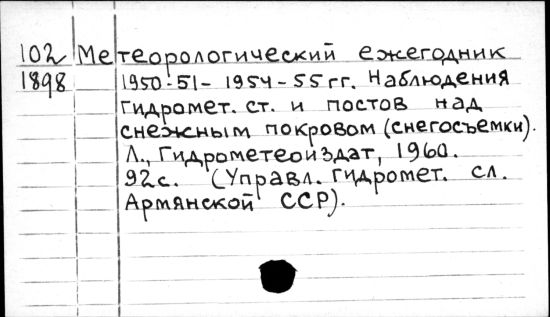 102 Метеорологический ежегодник
1898 1950-51- 1954-55 гг. Наблюдения
гидромет. ст. и постов над
снежным покровом (снегосъемки).
Л., Гидрометеоиздат, 1960.
92с. (Управл. гидромет. сл.
Армянской ССР).